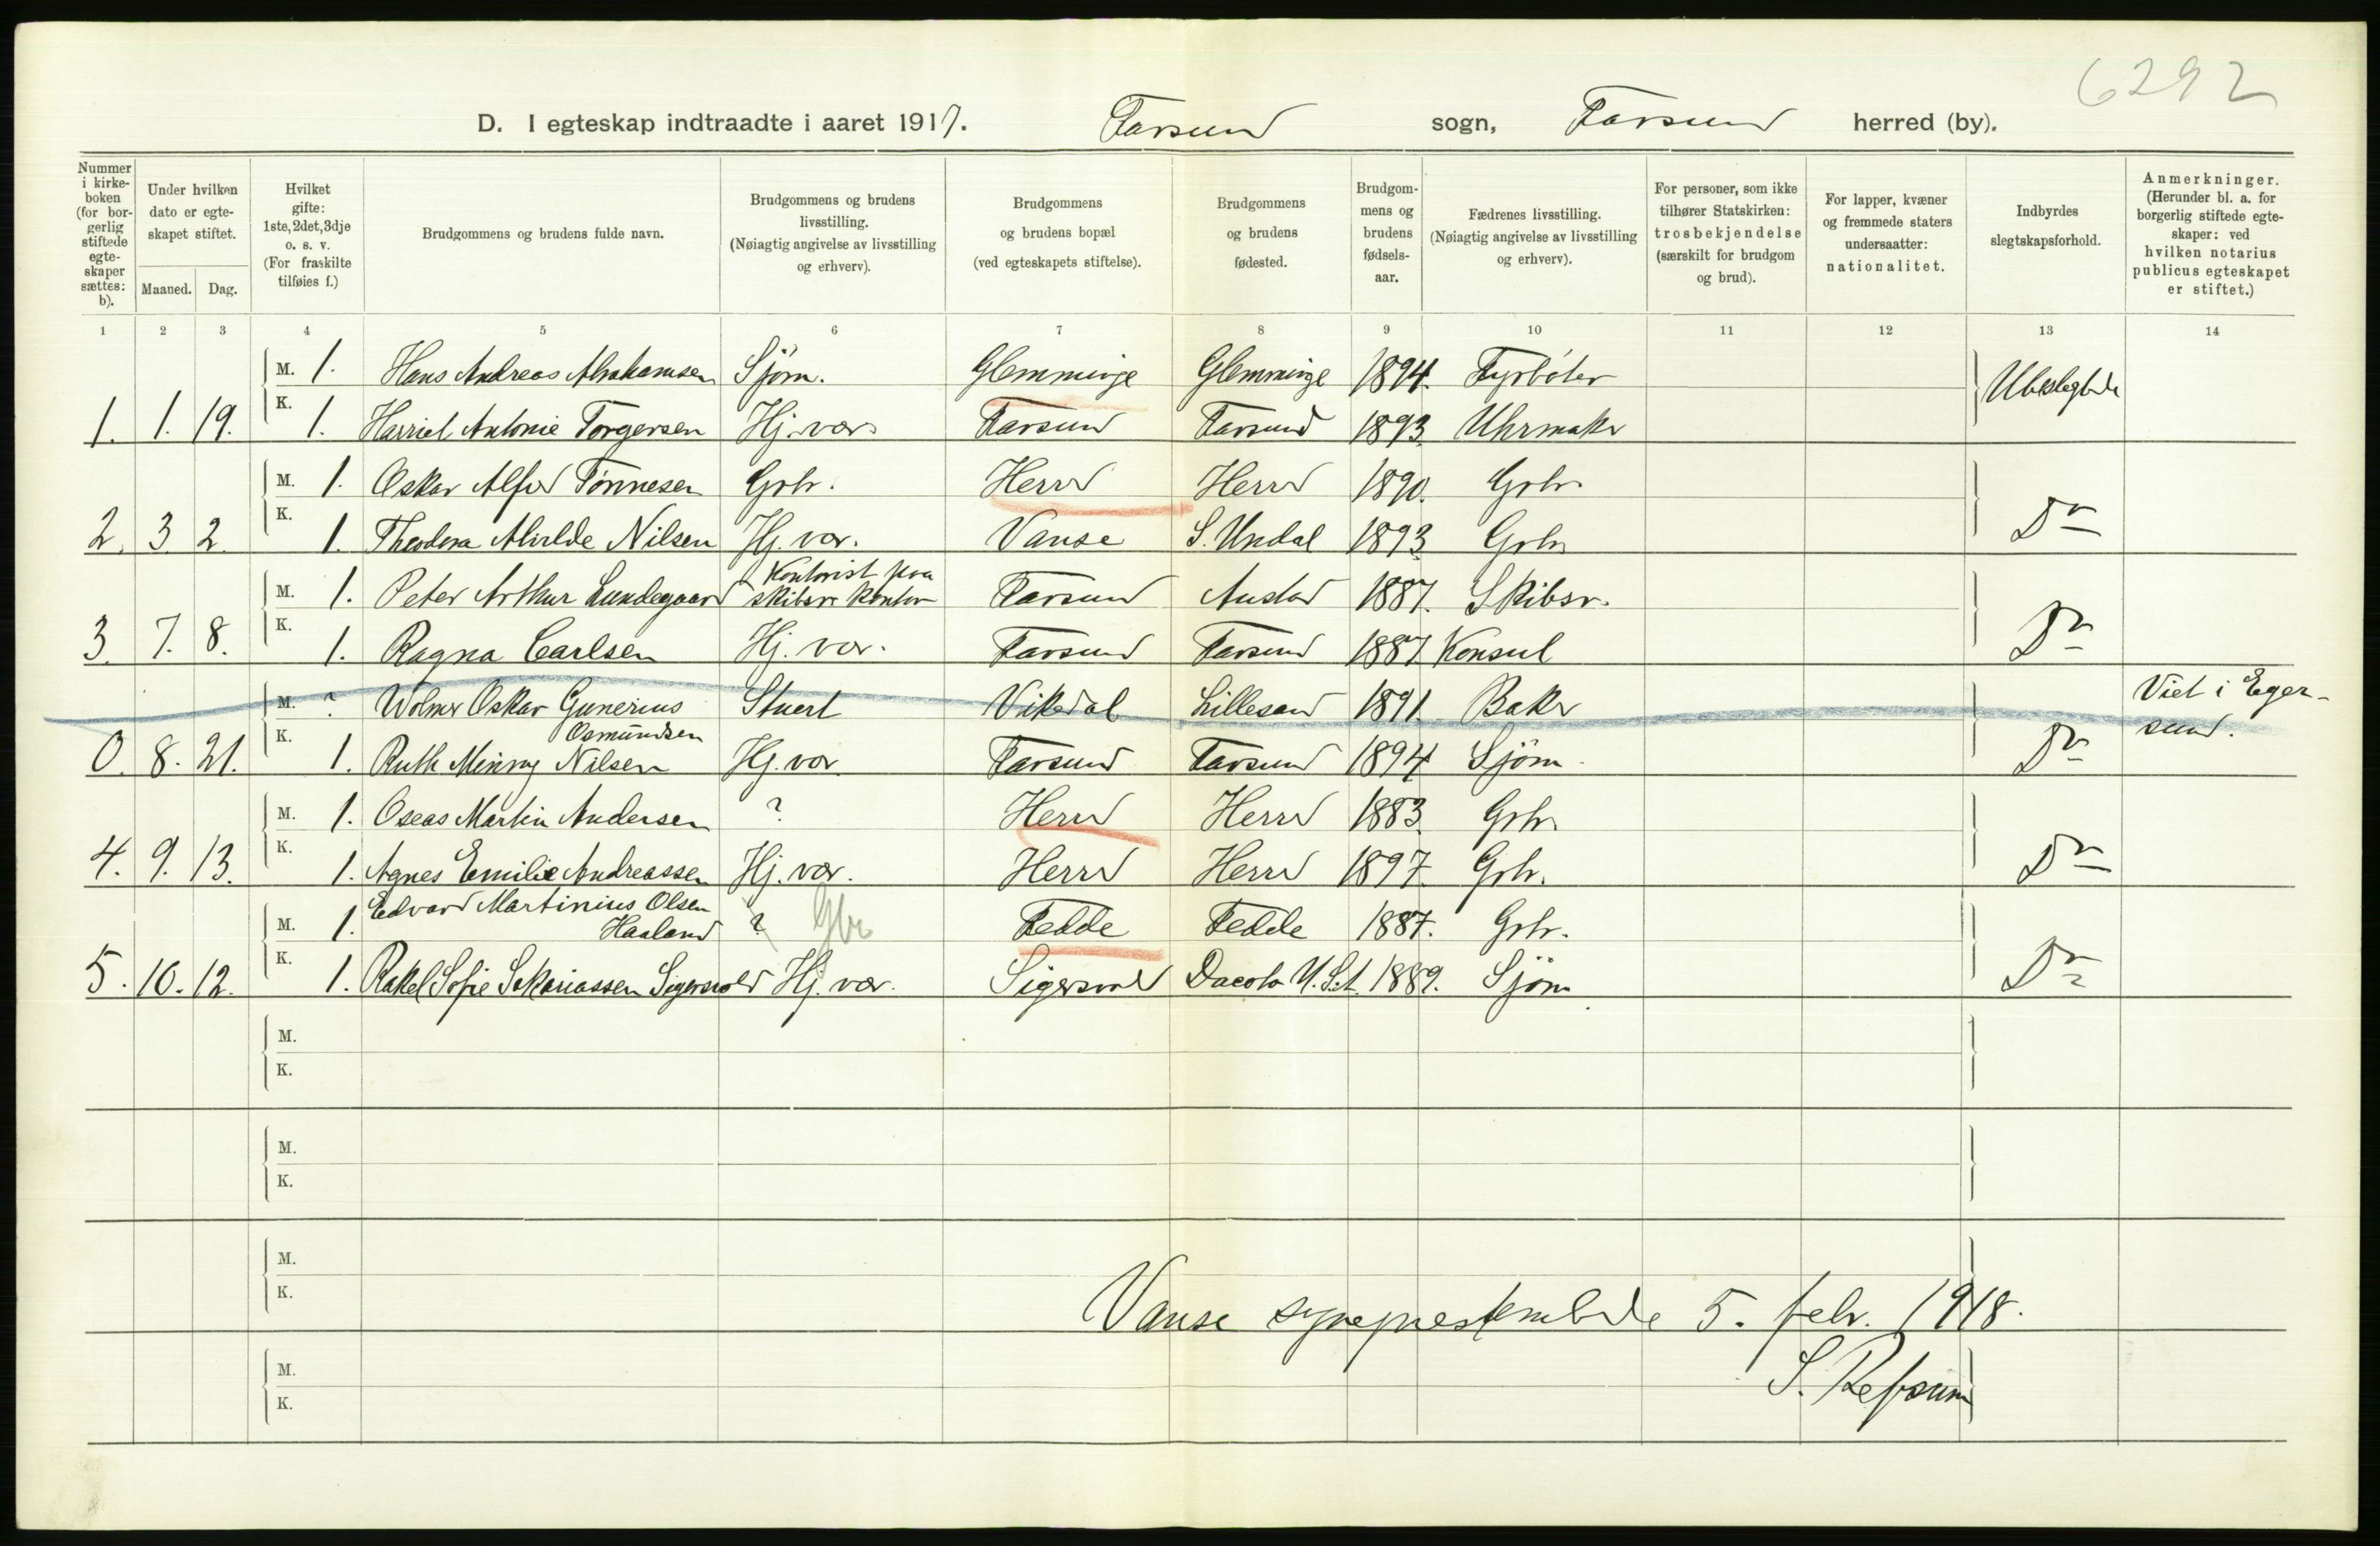 6292
D. I egteskap indtraadte i aaret 1917. Farsund sogn, Farsund herred (by).
Nummer i kirkeboken (for borgerlig stiftede egteskaper sættes: b).
Under hvilken dato er egteskapet stiftet.
Maaned. Dag.
Hvilket gifte: 1ste, 2det, 3dje o. s. v. (For fraskilte tilføies f.)
Brudgommens og brudens fulde navn.
Brudgommens og brudens livsstilling. (Nøiagtig angivelse av livsstilling og erhverv).
Brudgommens og brudens bopæl (ved egteskapets stiftelse).
Brudgommens og brudens fødested.
Brudgommens og brudens fødselsaar.
Fædrenes livsstilling. (Nøiagtig angivelse av livsstilling og erhverv).
For personer, som ikke tilhører Statskirken: trosbekjendelse (særskilt for brudgom og brud).
For lapper, kvæner og fremmede staters undersaatter: nationalitet.
Indbyrdes slegtskapsforhold.
Anmerkninger. (Herunder bl. a. for borgerlig stiftede egteskaper: ved hvilken notarius publicus egteskapet er stiftet.)
1 2 3 4 5 6 7 8 9 10 11 12 13 14
M. 1. Hans Andreas Abrahamsen Sjøm. Glemminge Glemminge 1894. Fyrbøter Ubeslegtede
1. 1. 19. K. 1. Harriet Antonie Torgersen Hj. vær. Farsund Farsund 1893. Uhrmaker
M. 1. Oskar Alfred Tønnesen Grbr. Herred Herred 1890. Grbr.
2. 3 2. K. 1. Theodora Alvilde Nilsen Hj. vær. Vanse S. Undal 1893. Grbr. Do
Kontorist paa
M. 1. Peter Arthur Lundegaard skibsr. kontor Farsund Austad 1887. Skibsr.
3. 7. 8. K. 1. Ragna Carlsen Hj. vær. Farsund Farsund 1887. Konsul Do
M. ? Wolmer Oskar Gunerius Stuert Vikedal Lillesand 1891. Baker Viet i Eger-
Osmundsen sund.
0. 8. 21. K. 1. Ruth Minny Nilsen Hj. vær. Farsund Farsund 1894 Sjøm. Do
M. 1. Oseas Martin Andersen ? Herred Herred 1883. Grbr.
4. 9. 13. K. 1. Agnes Emilie Andreassen Hj. vær. Herred Herred 1897. Grbr. Do
Edvard Martinius Olsen
M. 1. Haaland ? Gbr Fedde Fedde 1887. Grbr.
5. 10. 12. K. 1. Rakel Sofie Sakariassen Sigersvold Hj. vær. Sigersvold Dacota U.S.A. 1889. Sjøm. Do
M.
K.
M.
K.
M.
K.
Vanse sogneprestembede 5. febr. 1918.
M.
S. Refsum
K.